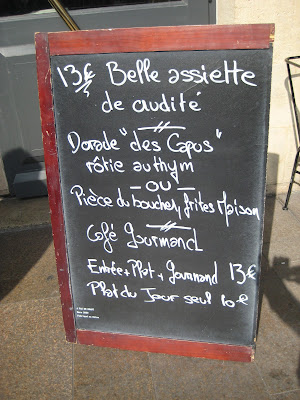 13€ Belle assiette
de crudité
Dorade "des Capus"
rôtie au thym
- OU -
Pièce du boucher, frites Maison
Café Gourmand
Entrée + Plat + Gourmand 13€
Plat du Jour seul 10€